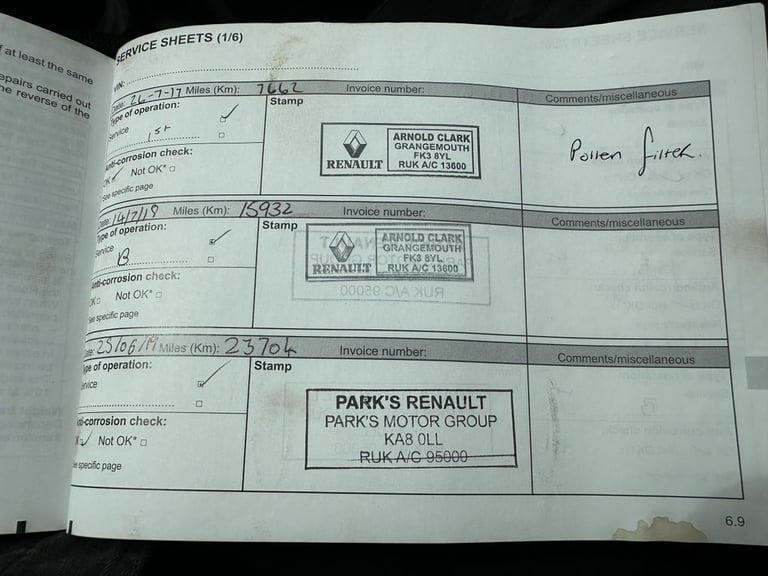 f at least the same
epairs carried out
he reverse of the
SERVICE SHEETS (1/6)
VIN:
Date: 26-7-17 Miles (Km): 7662 Invoice number:
Comments/miscellaneous
Type of operation:
Stamp
Service
1st
Anti-corrosion check:
OK Not OK*
See specific page
RENAULT
ARNOLD CLARK
GRANGEMOUTH
FK3 8YL
RUK A/C 13600
Pollen filter.
Date: 14/7/18 Miles (Km): 15932 Invoice number:
Comments/miscellaneous
Type of operation:
Stamp
Service
B
Anti-corrosion check:
OK Not OK*
See specific page
RENAULT
ARNOLD CLARK
GRANGEMOUTH
FK3 8YL
RUK A/C 13600
Date: 25/06/19 Miles (Km): 23704 Invoice number:
Comments/miscellaneous
ype of operation:
Stamp
ervice
nti-corrosion check:
K Not OK*
ee specific page
PARK'S RENAULT
PARK'S MOTOR GROUP
KA8 0LL
RUK A/C 95000
6.9